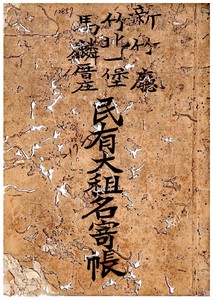 新竹廳
竹北一堡
馬麟厝庄
民有大租名寄帳